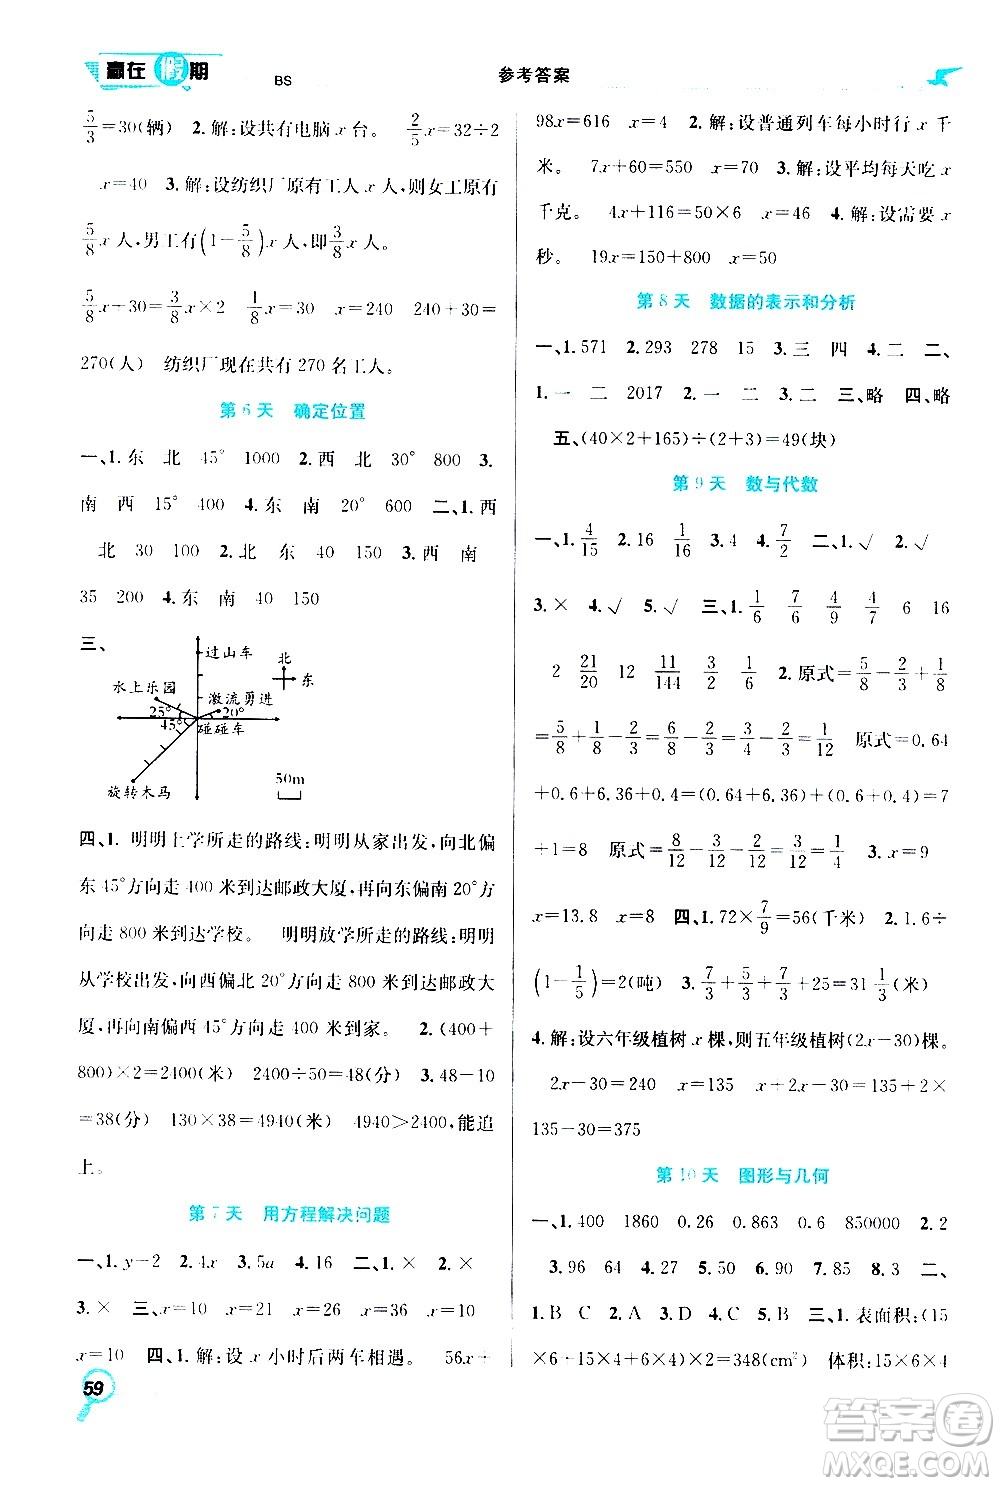 赢在假期
BS
参考答案
5/3=30(辆) 2.解:设共有电脑 x 台。 2/5x=32÷2
x=40 3.解:设纺织厂原有工人 x 人,则女工原有
5/8x 人,男工有(1-5/8)人,即3/8x 人。
5/8x-30=3/8x×2 1/8x=30 x=240 240+30=
270(人) 纺织厂现在共有 270 名工人。
第 6 天 确定位置
一、1.东 北 45° 1000 2.西 北 30° 800 3.
南 西 15° 400 4.东 南 20° 600 二、1.西
北 30 100 2.北 东 40 150 3.西 南
35 200 4.东 南 40 150
三、
过山车
北
东
水上乐园
激流勇进
25°
20°
45°
碰碰车
旋转木马
50m
四、1. 明明上学所走的路线:明明从家出发,向北偏
东 45°方向走 400 米到达邮政大厦,再向东偏南 20°方
向走 800 米到达学校。 明明放学所走的路线:明明
从学校出发,向西偏北 20°方向走 800 米到达邮政大
厦,再向南偏西 45°方向走 400 米到家。 2.(400+
800)×2=2400(米) 2400÷50=48(分) 3.48-10
=38(分) 130×38=4940(米) 4940>2400,能追
上。
第 7 天 用方程解决问题
一、1.y-2 2.4x 3.5a 4.16 二、1.× 2.×
3.× 三、x=10 x=21 x=26 x=36 x=10
x=10 四、1.解:设 x 小时后两车相遇。 56x+
59
98x=616 x=4 2.解:设普通列车每小时行 x 千
米。 7x+60=550 x=70 3.解:设平均每天吃 x
千克。 4x+116=50×6 x=46 4.解:设需要 x
秒。 19x=150+800 x=50
第 8 天 数据的表示和分析
一、1.571 2.293 278 15 3.三 四 4.二 二、
1.一 二 2017 2.一 二 2 三、略 四、略
五、(40×2+165)÷(2+3)=49(块)
第 9 天 数与代数
一、1.4/15 2.16 1/16 3.4 4.7/2 二、1.✓ 2.✓
3.× 4.✓ 5.✓ 三、1.1/6 7/6 4/9 4/9 6 16
2 21/20 12 11/144 2/3 1/6 2.原式=5/8-2/3+9/8
=5/8+9/8-2/3=6/4-2/3=10/12 原式=0.64
+0.6+6.36+0.4=(0.64+6.36)+(0.6+0.4)=7
+1=8 原式=8/12-2/12+3/12=9/12=3/4 3.x=9
x=13.8 x=8 四、1.72×7/9=56(千米) 2.1.6÷
(1-1/5)=2(吨) 3.7/3+5/3×5/3+25=31 1/3(米)
4.解:设六年级植树 x 棵,则五年级植树(2x-30)棵。
2x-30=240 x=135 x+2x-30=135+2×
135-30=375
第 10 天 图形与几何
一、1.400 1860 0.26 0.863 0.6 850000 2.2
3.96 64 4.150 5.27 6.120 7.20 8.3 二、
1.B C 2.A 3.D 4.C 5.B 三、1.表面积:(15
×6+15×4+6×4)×2=348(cm²) 体积:15×6×4
答案卷